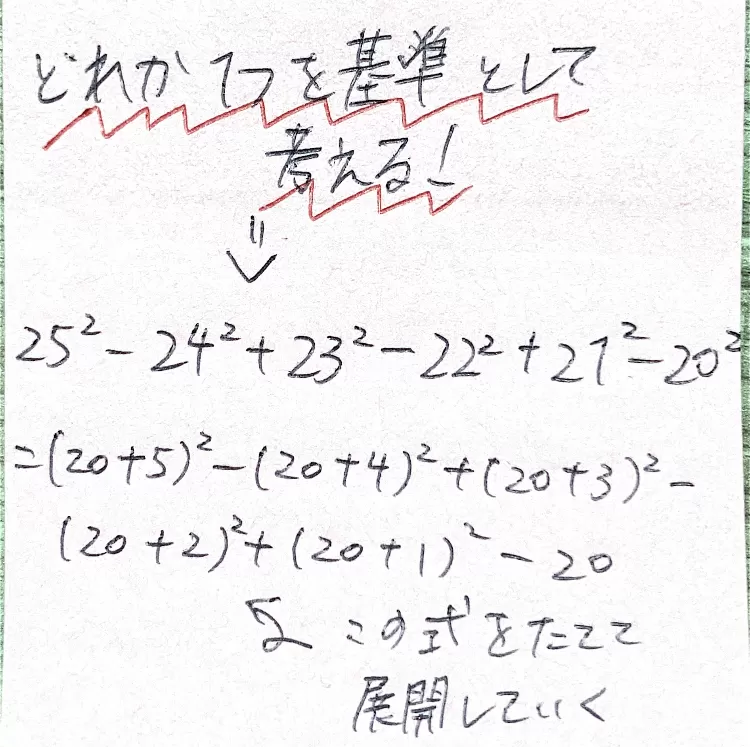 どれか1つを基準として
考える!
25²-24²+23²-22²+21²-20²
=(20+5)²-(20+4)²+(20+3)²-
(20+2)²+(20+1)²-20
この式をたてて
展開していく